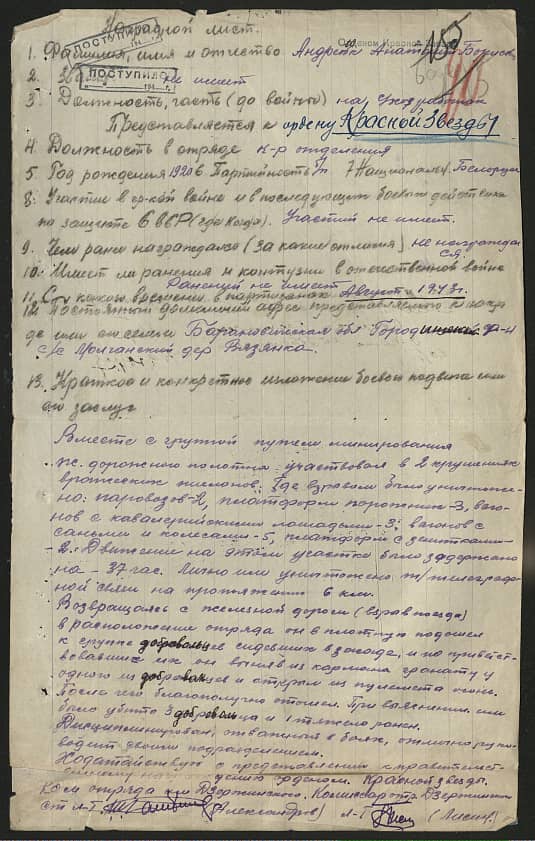 Наградной лист.
ПОСТУПИЛО
Орденом Красной
155
1. Фамилия, имя и отчество Анатолий
2. не имеет
ПОСТУПИЛО
194 г.
3. Должность, часть (до войны) на
Представляется к ордену Красной Звезды
4. Должность в отряде к-р отделения
5. Год рождения 1920 6 Партийность 7 Национальн. Белорус
8. Участие в гр-кой войне и в последующих боевых действиях
по защите СССР (где когда). Участий не имеет.
9. Чем ранее награждался (за какие отличия) не награждал
ся.
10. Имеет ли ранения и контузии в отечественной войне
Ранений не имеет
11. С какого времени в партизанах Август 1943 г.
12. Постоянный домашний адрес представляемого к награ
де или его семьи Барановичская обл Город р-н
с/с дер Вязянка.
13. Краткое и конкретное изложение боевого подвига или
его заслуг
Вместе с группой путем минирования
ж. дорожного полотна участвовал в 2 крушениях
вражеских эшелонов. Где взрывом было уничтоже-
но: паровозов-2, платформ порожних-3, ваго-
нов с кавалерийскими лошадьми-3; вагонов с
саньми и колесами-5, платформ с зенитками-
-2. Движение на этом участке было задержано
на - 37 час. Лично им уничтожено т/телеграф-
ной связи на протяжении 6 клм.
Возвращаясь с железной дороги (взрыв поезда)
в расположение отряда он вплотную подошел
к группе добровольцев сидевших в засаде, и по приветст-
вовавших их он вынял из кармана гранату у
одного из добровольцев и открыл из пулемета огонь.
После чего благополучно отошел. При выяснении им
было убито 3 добровольца и 1 тяжело ранен.
Дисциплинирован, отважный в боях, отлично руко-
водит своим подразделением.
Ходатайствую о представлении к правительст-
венному награждению орденом Красной звезды.
Ком отряда им Дзержинского. Комиссар отр. Дзержинского
ст л-т (Александров) л-т